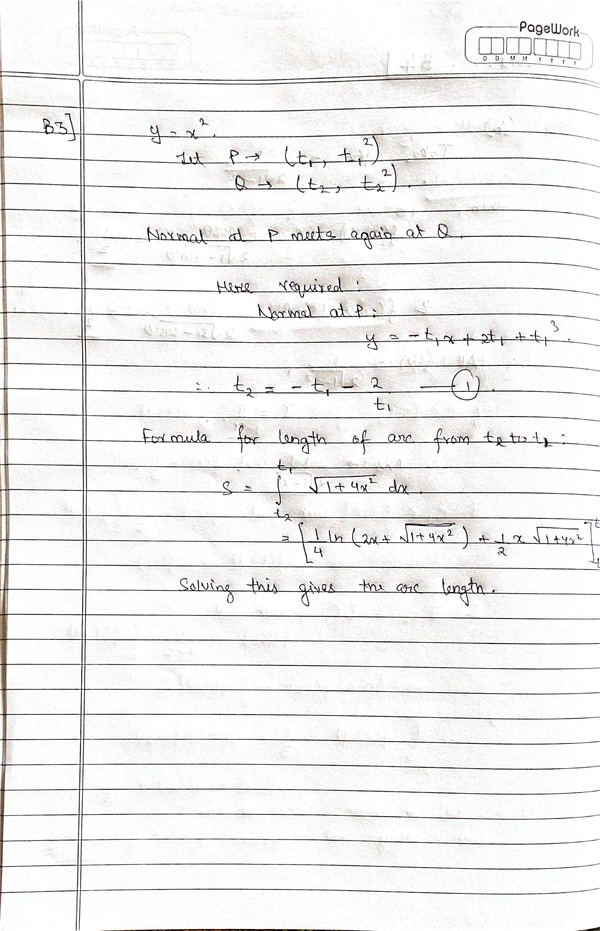 PageWork
D D M M Y Y Y Y
B3]
y = x².
Let P → (t₁, t₁²)
Q → (t₂, t₂²).
Normal at P meets again at Q.
Here required :
Normal at P :
y = -t₁x + 2t₁ + t₁³.
∴ t₂ = -t₁ - 2/t₁ —— ①.
Formula for length of arc from t₂ to t₁ :
S = ∫_{t₂}^{t₁} √(1+4x²) dx.
= [1/4 ln (2x + √(1+4x²)) + 1/2 x √(1+4x²)]
Solving this gives the arc length.